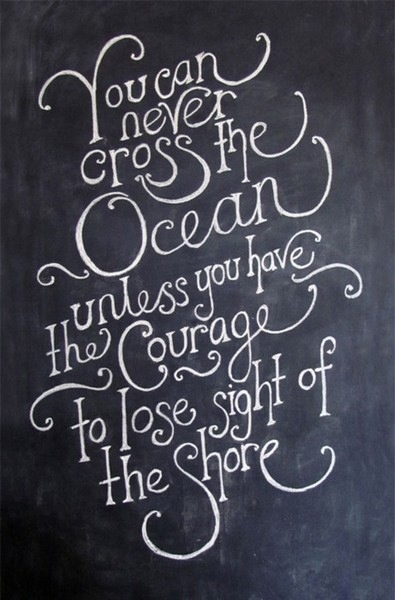 You can
never
cross the
Ocean
unless you have
the Courage
to lose sight of
the Shore